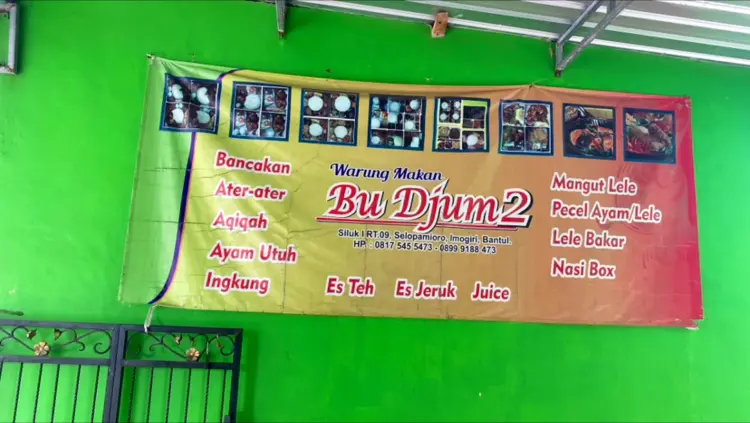 Bancakan
Ater-ater
Aqiqah
Ayam Utuh
Ingkung
Warung Makan
Bu Djum2
Siluk I RT.09, Selopamioro, Imogiri, Bantul.
HP. : 0817 545 5473 - 0899 9188 473
Es Teh Es Jeruk Juice
Mangut Lele
Pecel Ayam/Lele
Lele Bakar
Nasi Box